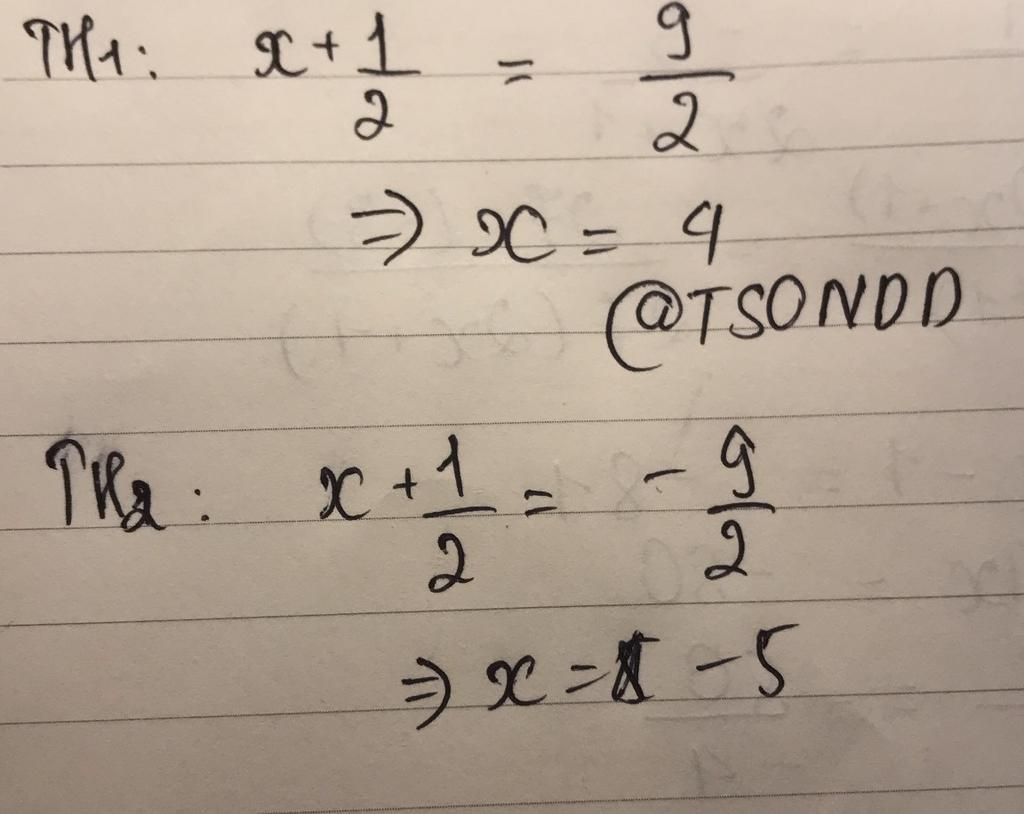 TH1: x + 1/2 = 9/2
⇒ x = 4
@TSONDD
TH2: x + 1/2 = - 9/2
⇒ x = - 5